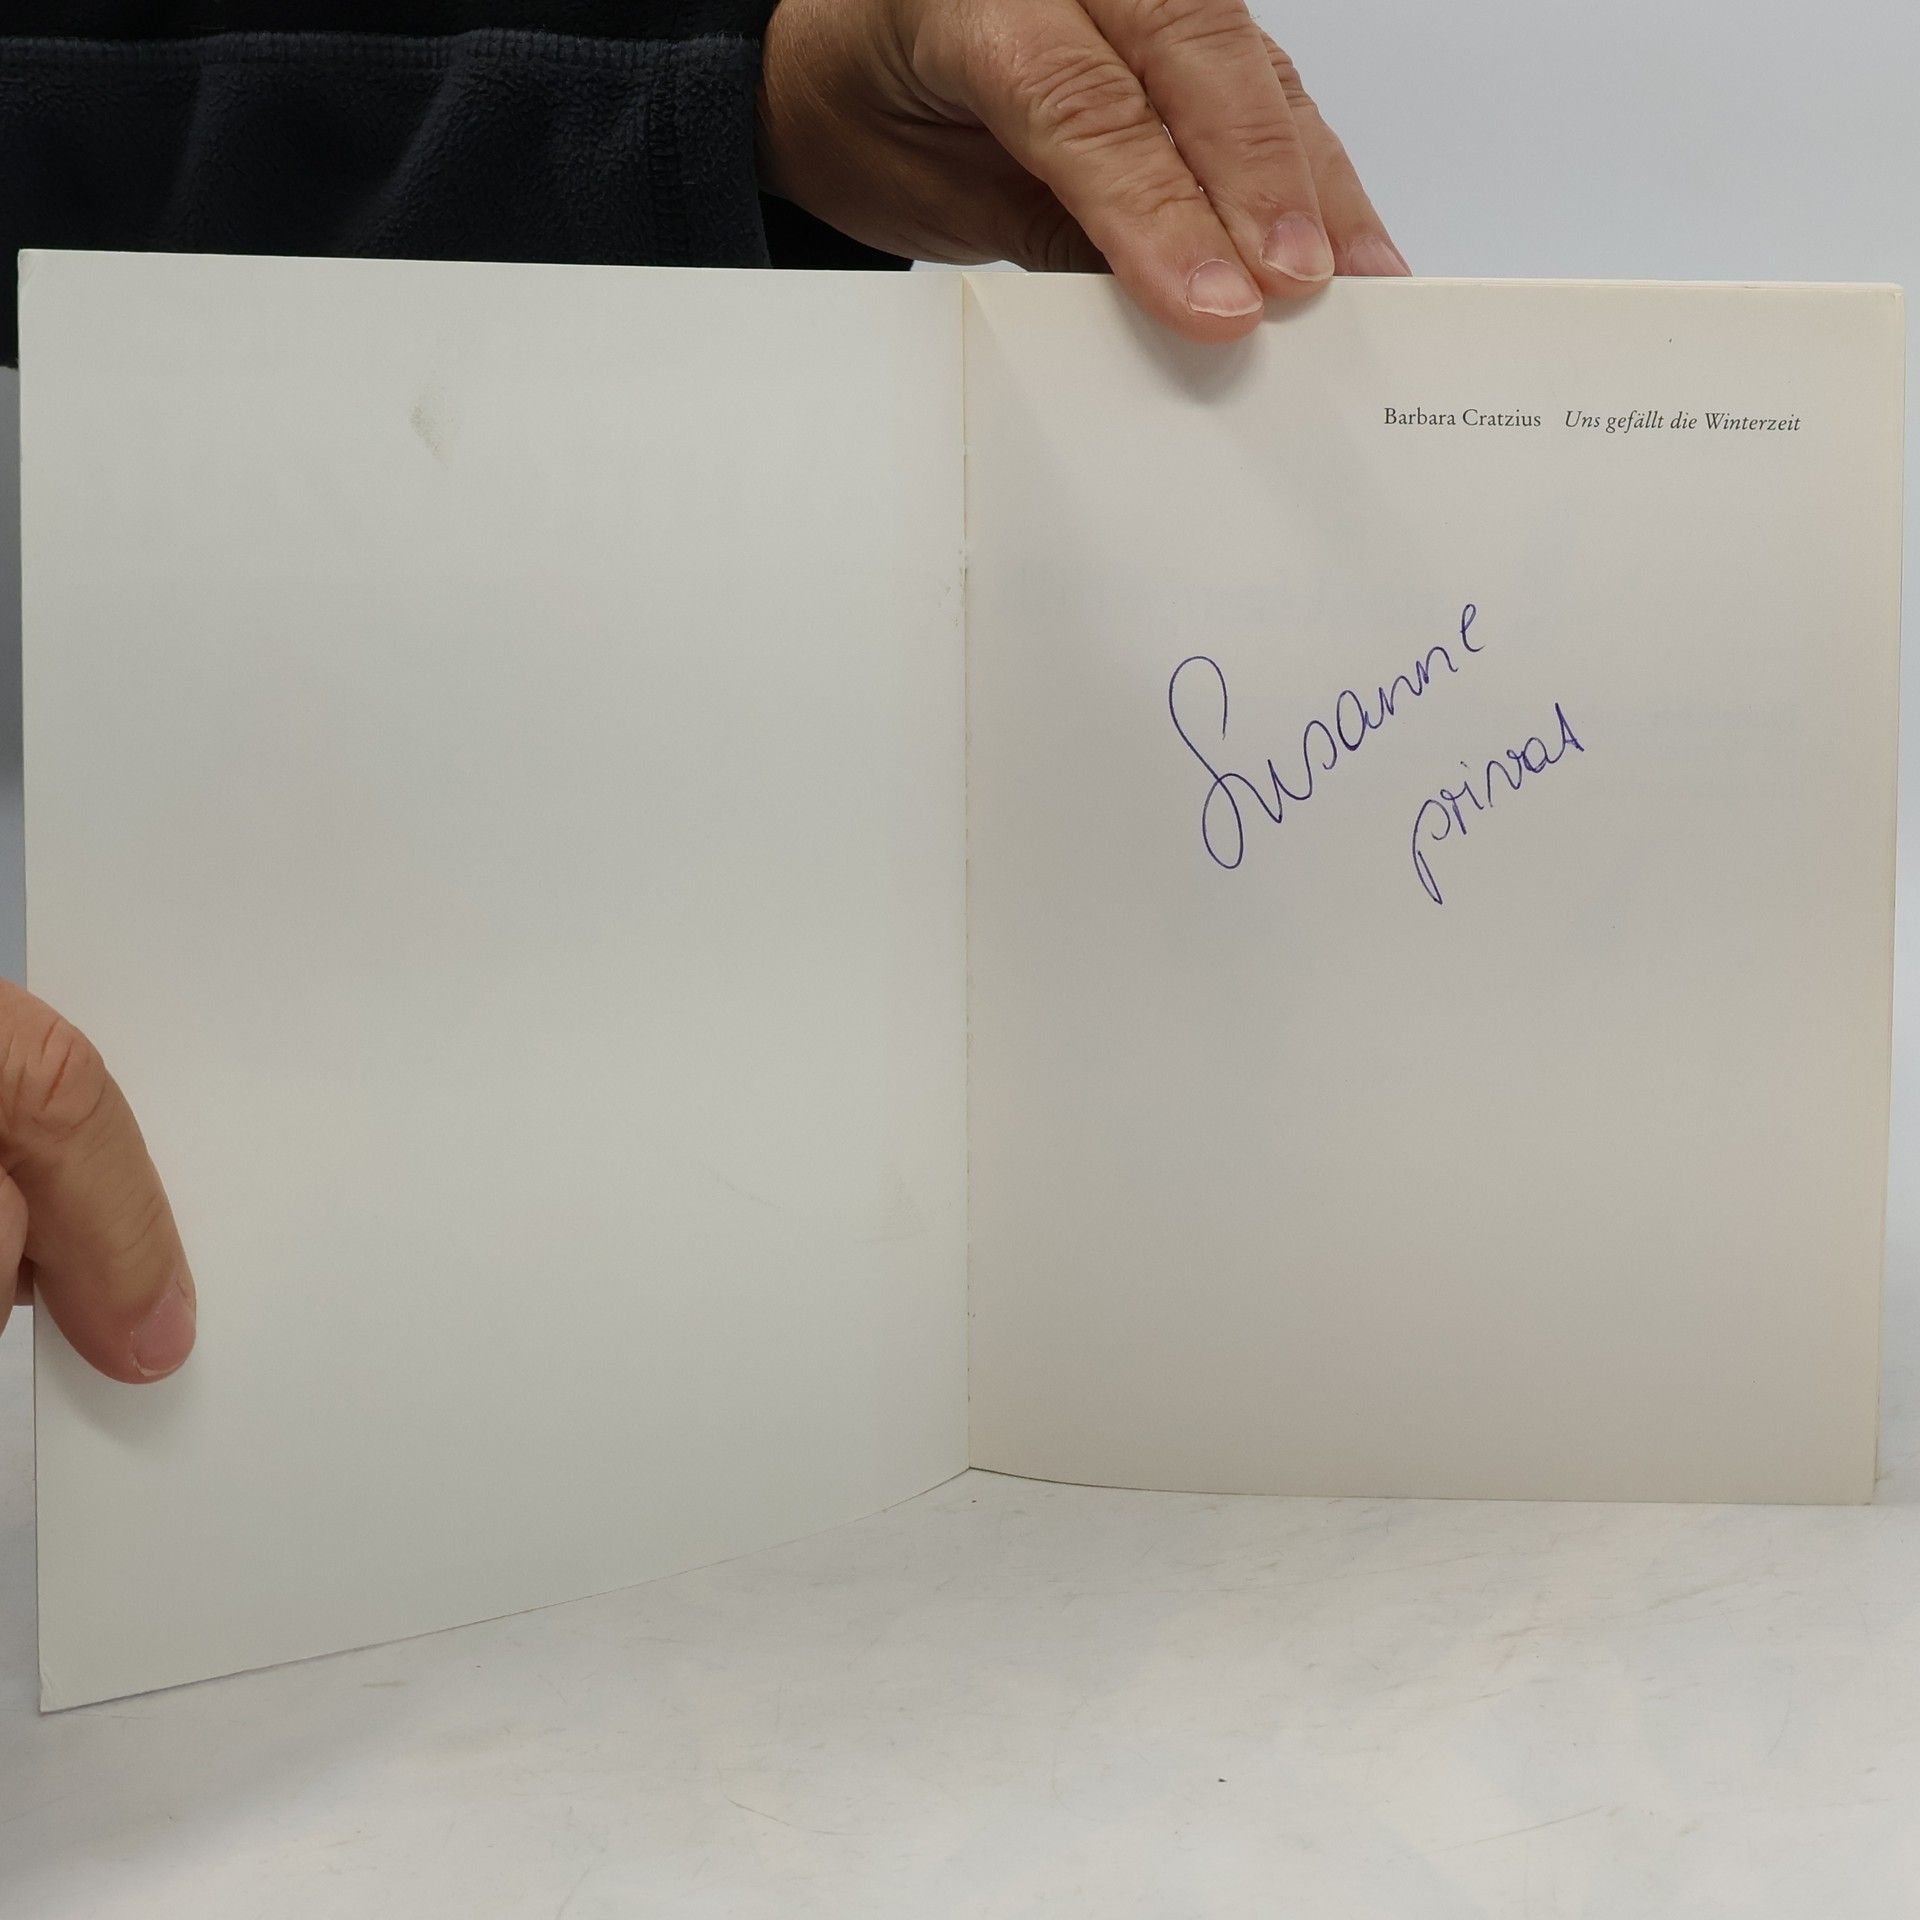 Barbara Cratzius Uns gefällt die Winterzeit
Susanne
privat